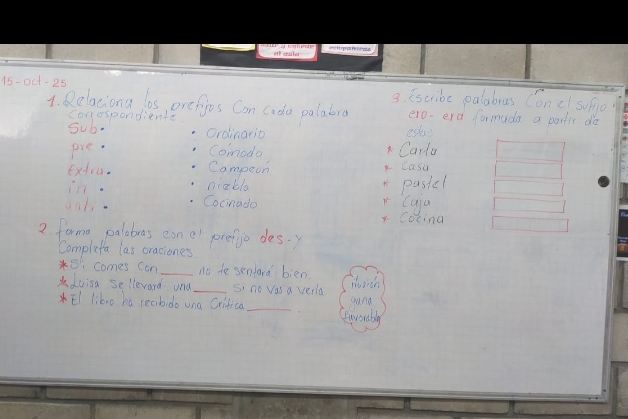 15-oct-25
1. Relaciona los prefijos Con Cada palabra
correspondiente
Sub.
pre.
Extra.
in.
anti.
• Ordinario
• Cómodo
• Campeón
• niebla
• Cocinado
2. Forma palabras con el prefijo des- y
Completa las oraciones
* Si comes Con ____ no te sentará bien.
* Luisa se llevará una ____ si no vas a verla
* El libro ha recibido una Crítica ____.
ilusión
gana
favorable
3. Escribe palabras Con el sufijo
ero- era formada a partir de
estas
* Carta
* Casa
* pastel
* Caja
* Cocina